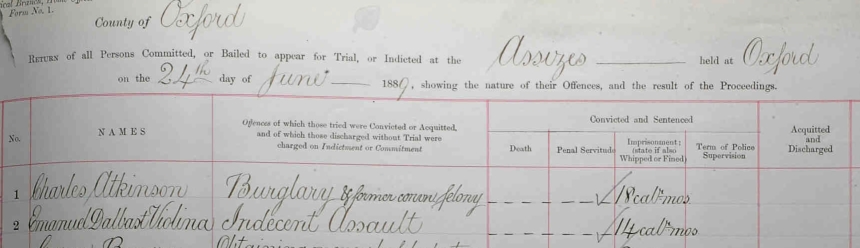 Form No. 1.
County of Oxford
RETURN of all Persons Committed, or Bailed to appear for Trial, or Indicted at the Assizes held at Oxford
on the 24th day of June 1889, showing the nature of their Offences, and the result of the Proceedings.
No.
NAMES
Offences of which those tried were Convicted or Acquitted,
and of which those discharged without Trial were
charged on Indictment or Commitment
Convicted and Sentenced
Death
Penal Servitude
Imprisonment:
(state if also
Whipped or Fined)
Term of Police
Supervision
Acquitted
and
Discharged
1 Charles Atkinson Burglary & former conv: felony – – – – ✓ 18 calr mos
2 Emanuel Dalbast Violina Indecent Assault – – – – ✓ 14 calr mos